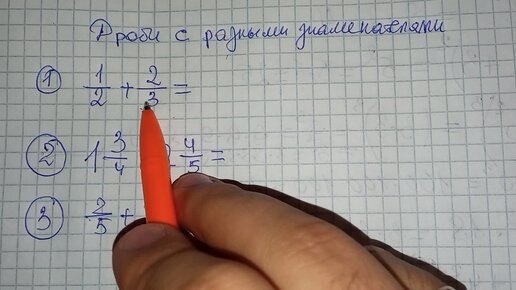 Дроби с разными знаменателями
① 1/2 + 2/3 =
② 1 3/4 4/5 =
③ 2/5 +